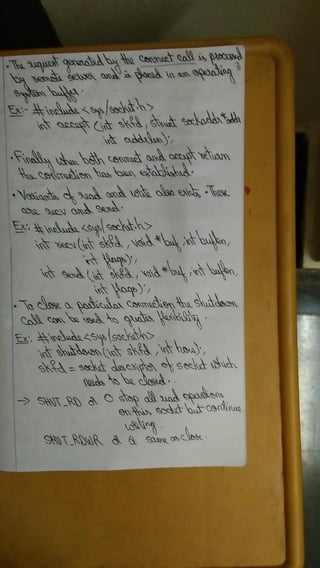 • The request generated by the connect call is processed
by remote server and is placed in an operating 3
system buffer.
Ex:- #include<sys/socket.h>
int accept (int skfd, struct sockaddr *addr
int addrlen);
• Finally when both connect and accept return
the connection has been established.
• Variants of read and write also exists. These
are recv and send.
Ex: #include<sys/socket.h>
int recv(int skfd, void *buf, int buflen,
int flags);
int send (int skfd, void *buf, int buflen,
int flags);
• To close a particular connection the shutdown
call can be used to greater flexibility.
Ex: #include<sys/socket.h>
int shutdown(int skfd, int how);
skfd = socket descriptor of socket which
needs to be closed.
→ SHUT_RD or 0 stop all read operations
on this socket but continue
writing.
SHUT_RDWR or 2 same as close.